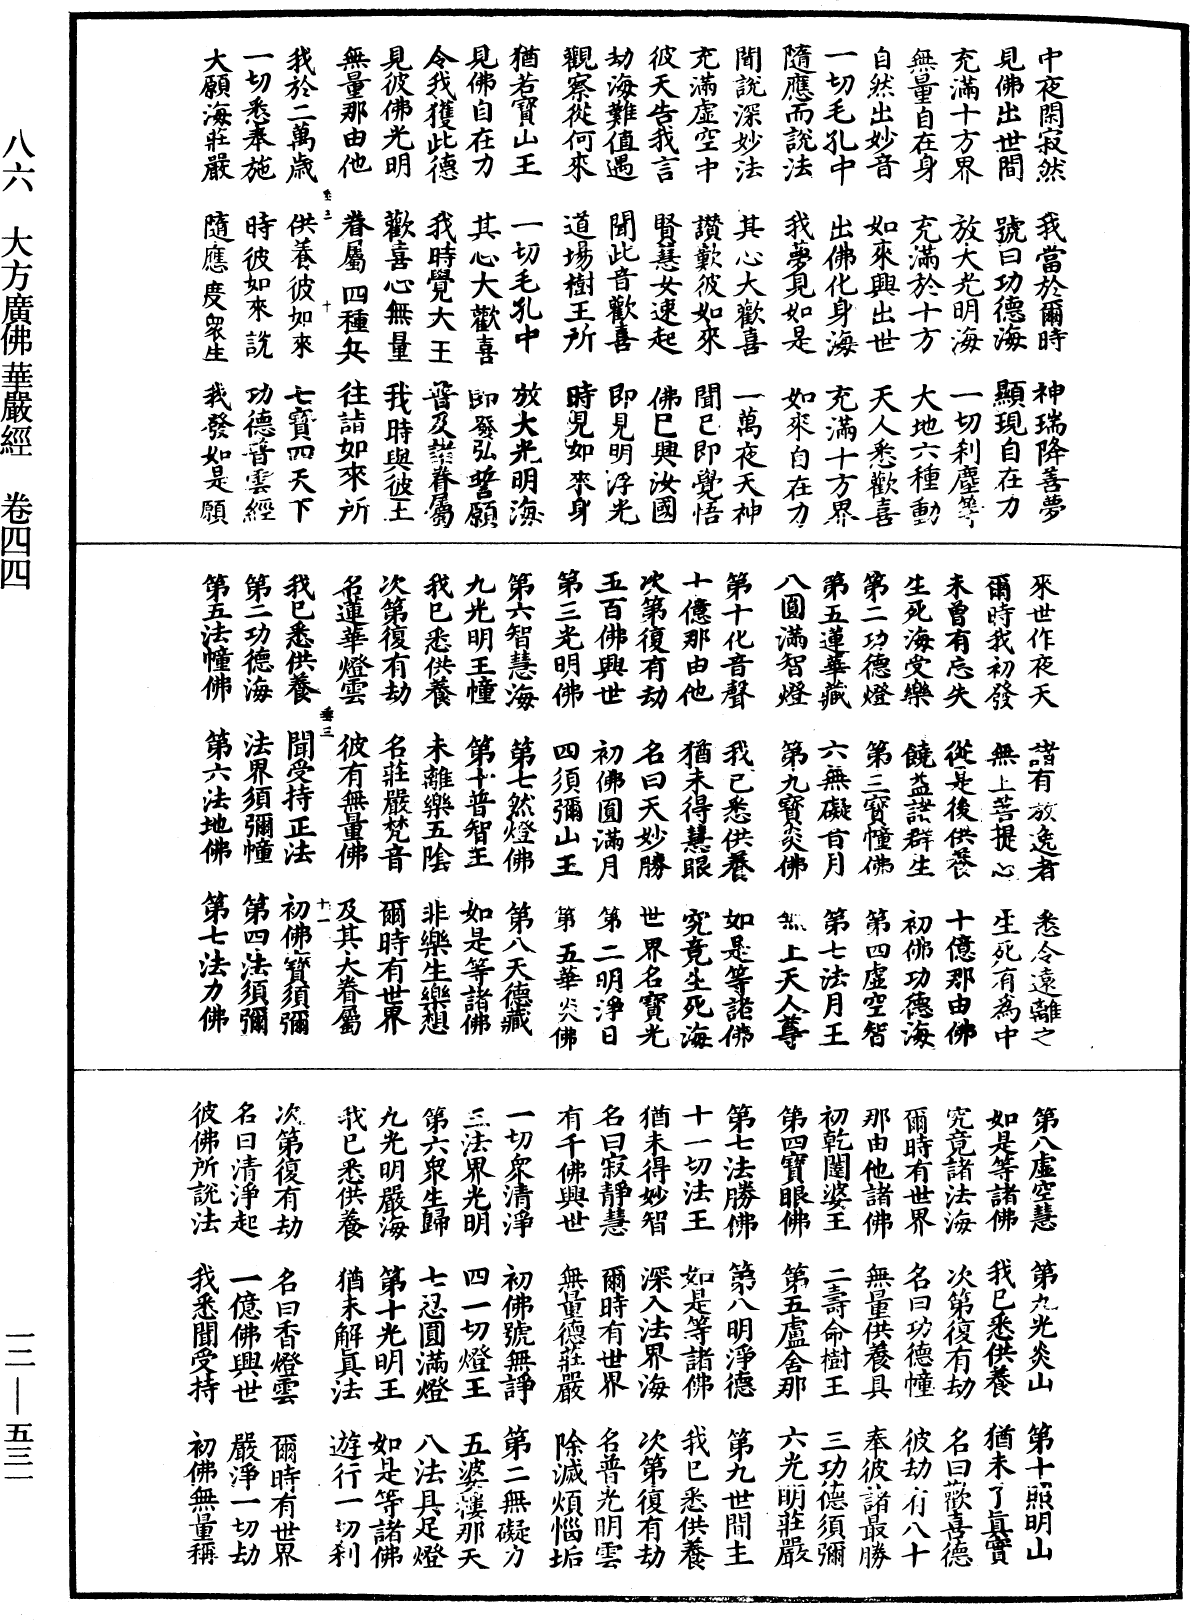 中夜閑寂然　我當於爾時　神瑞降善夢
見佛出世間　號曰功德海　顯現自在力
充滿十方界　放大光明海　一切刹塵等
無量自在身　充滿於十方　大地六種動
自然出妙音　如來興出世　天人悉歡喜
一切毛孔中　出佛化身海　充滿十方界
隨應而說法　我夢見如是　如來自在力
聞說深妙法　其心大歡喜　一萬夜天神
充滿虛空中　讃歎彼如來　聞已即覺悟
彼天告我言　賢慧女速起　佛已興汝國
劫海難值遇　聞此音歡喜　即見明浮光
觀察從何來　道場樹王所　時見如來身
猶若寶山王　一切毛孔中　放大光明海
見佛自在力　其心大歡喜　即發弘誓願
令我獲此德　我時覺大王　普及諸眷屬
見彼佛光明　歡喜心無量　我時與彼王
無量那由他　眷屬四種兵　往詣如來所
我於二萬歲　供養彼如來　七寶四天下
一切悉奉施　時彼如來說　功德普雲經
大願海莊嚴　隨應度衆生　我發如是願
來世作夜天　諸有放逸者　悉令遠離之
爾時我初發　無上菩提心　生死有為中
未曾有忘失　從是後供養　十億那由佛
生死海受樂　饒益諸群生　初佛功德海
第二功德燈　第三寶幢佛　第四虛空智
第五蓮華藏　六無礙百月　第七法月王
八圓滿智燈　第九寶炎佛　無上天人尊
第十化音聲　我已悉供養　如是等諸佛
十億那由他　猶未得慧眼　究竟生死海
次第復有劫　名曰天妙勝　世界名寶光
五百佛興世　初佛圓滿月　第二明淨日
第三光明佛　四須彌山王　第五華炎佛
第六智慧海　第七然燈佛　第八天德藏
九光明王幢　第十普智王　如是等諸佛
我已悉供養　未離樂五陰　非樂生樂想
次第復有劫　名莊嚴梵音　爾時有世界
名蓮華燈雲　彼有無量佛　及其大眷屬
我已悉供養　聞受持正法　初佛寶須彌
第二功德海　法界須彌幢　第四法須彌
第五法幢佛　第六法地佛　第七法力佛
第八虛空慧　第九光炎山　第十照明山
如是等諸佛　我已悉供養　猶未了眞實
究竟諸法海　次第復有劫　名曰歡喜德
爾時有世界　名曰功德幢　彼劫有八十
那由他諸佛　無量供養具　奉彼諸最勝
初乾闥婆王　二壽命樹王　三功德須彌
第四寶眼佛　第五盧舍那　六光明莊嚴
第七法勝佛　第八明淨德　第九世間主
十一切法王　如是等諸佛　我已悉供養
猶未得妙智　深入法界海　次第復有劫
名曰寂靜慧　爾時有世界　名普光明雲
有千佛興世　無量德莊嚴　除滅煩惱垢
一切衆清淨　初佛號無諍　第二無礙力
三法界光明　四一切燈王　五婆樓那天
第六衆生歸　七忍圓滿燈　八法具足燈
九光明嚴海　第十光明王　如是等諸佛
我已悉供養　猶未解眞法　遊行一切刹
次第復有劫　名曰香燈雲　爾時有世界
名曰清淨起　一億佛興世　嚴淨一切劫
彼佛所說法　我悉聞受持　初佛無量稱
垂三　十
垂三　十一
八六　大方廣佛華嚴經　卷四四
一二—五三一